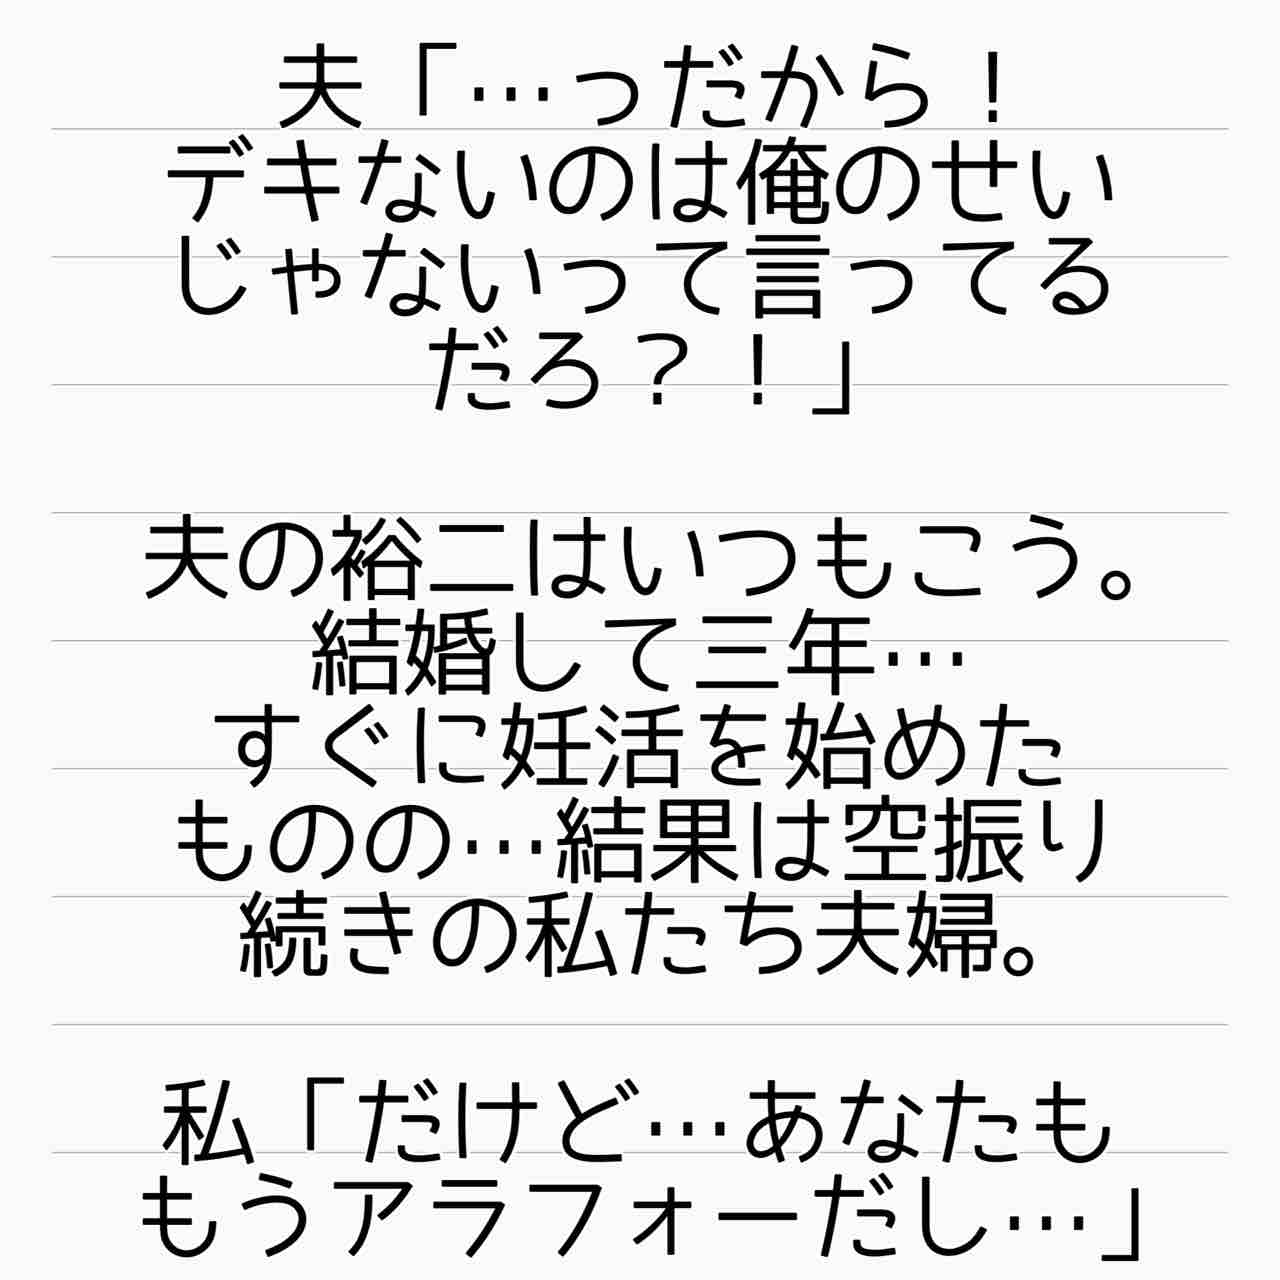 夫「…っだから！
デキないのは俺のせい
じゃないって言ってる
だろ？！」
夫の裕二はいつもこう。
結婚して三年…
すぐに妊活を始めた
ものの…結果は空振り
続きの私たち夫婦。
私「だけど…あなたも
もうアラフォーだし…」